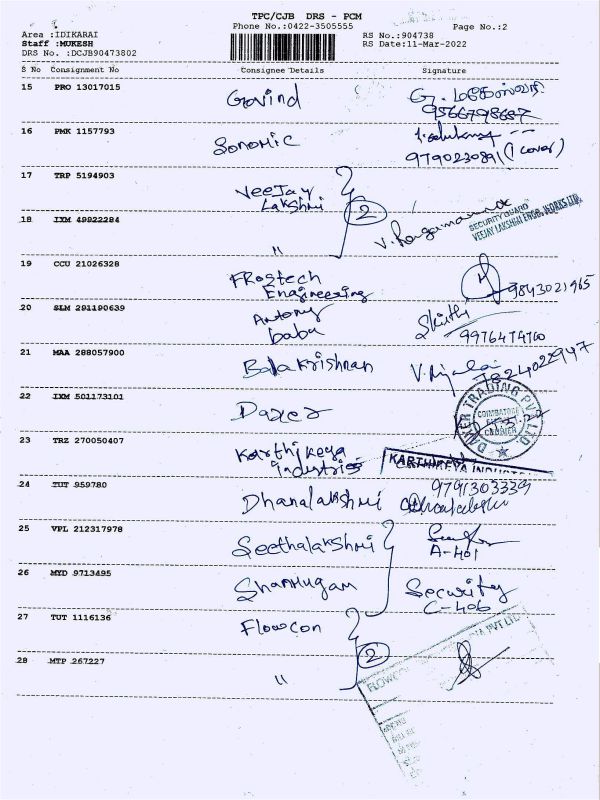 TPC/CJB DRS - PCM
Phone No.:0422-3505555 Page No.:2
Area :IDIKARAI RS No.:904738
Staff :MUKESH RS Date:11-Mar-2022
DRS No. :DCJB90473802
S No Consignment No Consignee Details Signature
15 PRO 13017015 Govind G. மகேஸ்வரி
9566798687
16 PMK 1157793 Sonomic
9790230891 (1 cover)
17 TRP 5194903 VeeJay
Lakshmi
2
18 IXM 49922284 "
SECURITY GUARD
VEEJAY LAKSHMI ENGG. WORKS LTD.
19 CCU 21026328 FRostech
Engineering 9843021965
20 SLM 291190639 Antony
babu 9976474700
21 MAA 288057900 Balakrishnan
7824022947
22 IXM 501173101 Daxer
DAXER TRADING PVT. LTD.
COIMBATORE
23 TRZ 270050407 Karthikeya
industries KARTHIKEYA INDUSTRI
24 TUT 959780 Dhanalakshmi 9791303339
25 VPL 212317978 Seethalakshmi
A-401
26 MYD 9713495 Shanmugam Security
C-406
27 TUT 1116136 Flowcon
2
28 MTP 267227 "
PVT LTD